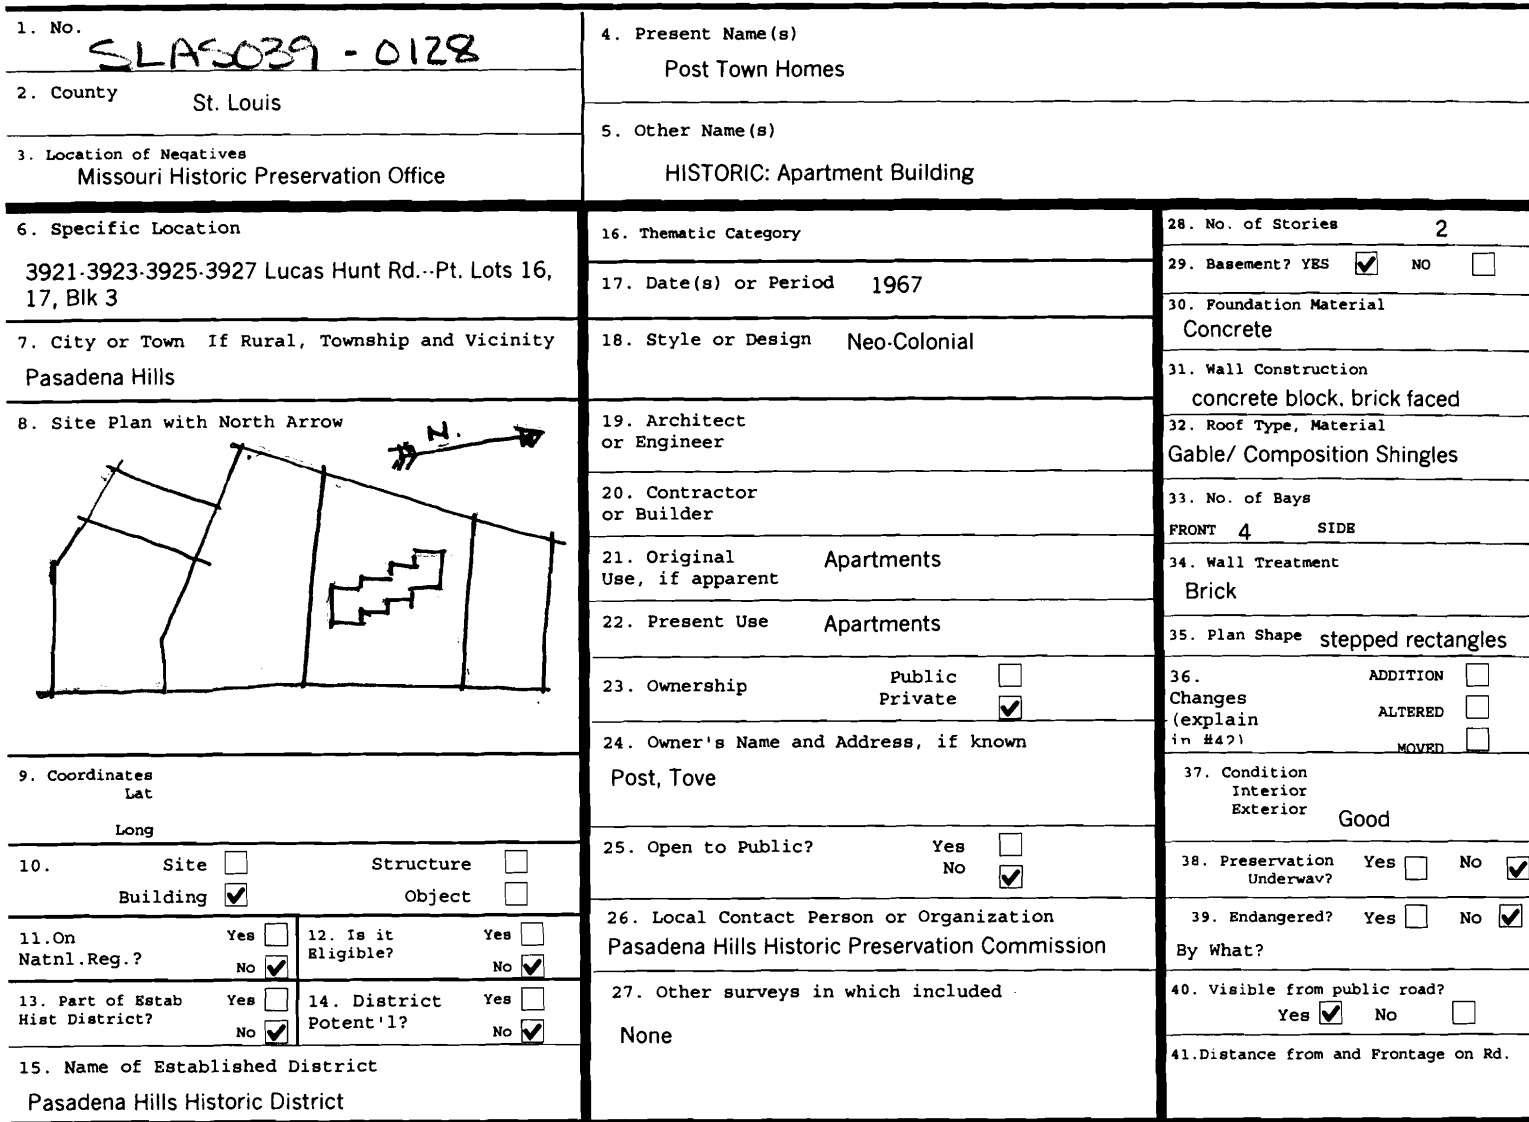 1. No.
SLAS039 - 0128
2. County St. Louis
3. Location of Negatives
Missouri Historic Preservation Office
4. Present Name(s)
Post Town Homes
5. Other Name(s)
HISTORIC: Apartment Building
6. Specific Location
3921-3923-3925-3927 Lucas Hunt Rd.--Pt. Lots 16,
17, Blk 3
7. City or Town If Rural, Township and Vicinity
Pasadena Hills
8. Site Plan with North Arrow
N.
9. Coordinates
Lat
Long
10. Site Structure
Building Object
11.On Yes
Natnl.Reg.? No
12. Is it Yes
Eligible? No
13. Part of Estab Yes
Hist District? No
14. District Yes
Potent'l? No
15. Name of Established District
Pasadena Hills Historic District
16. Thematic Category
17. Date(s) or Period 1967
18. Style or Design Neo-Colonial
19. Architect
or Engineer
20. Contractor
or Builder
21. Original Apartments
Use, if apparent
22. Present Use Apartments
23. Ownership Public
Private
24. Owner's Name and Address, if known
Post, Tove
25. Open to Public? Yes
No
26. Local Contact Person or Organization
Pasadena Hills Historic Preservation Commission
27. Other surveys in which included
None
28. No. of Stories 2
29. Basement? YES NO
30. Foundation Material
Concrete
31. Wall Construction
concrete block, brick faced
32. Roof Type, Material
Gable/ Composition Shingles
33. No. of Bays
FRONT 4 SIDE
34. Wall Treatment
Brick
35. Plan Shape stepped rectangles
36. ADDITION
Changes
(explain ALTERED
in #42) MOVED
37. Condition
Interior
Exterior Good
38. Preservation Yes No
Underway?
39. Endangered? Yes No
By What?
40. Visible from public road?
Yes No
41.Distance from and Frontage on Rd.